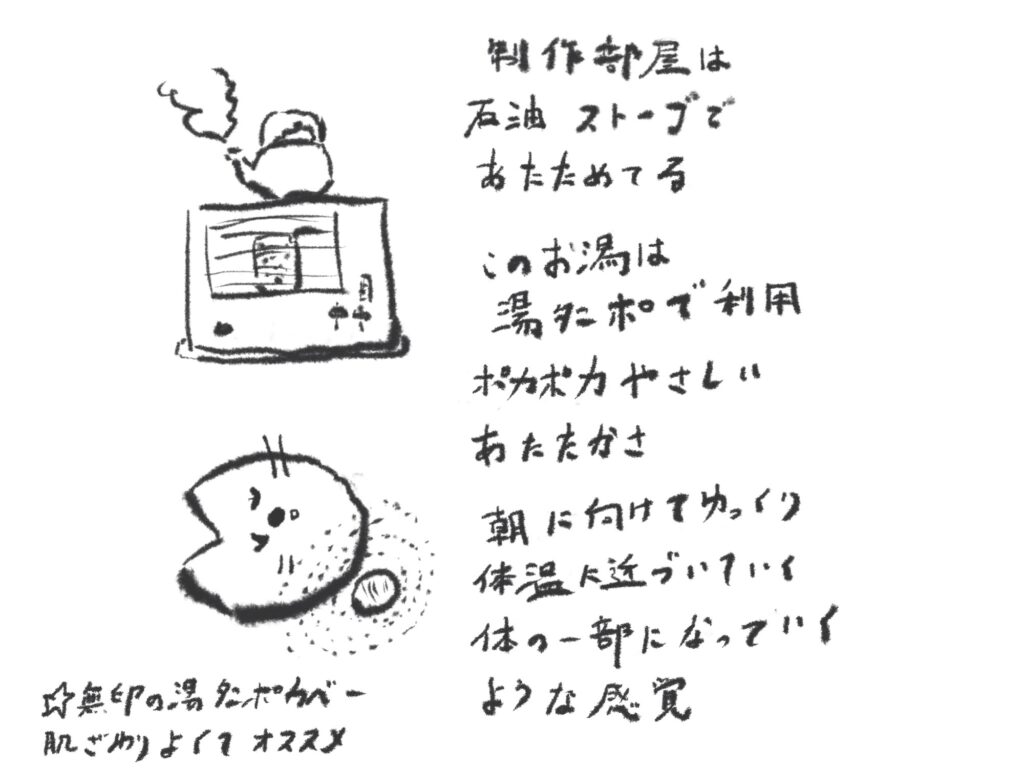 制作部屋は
石油ストーブで
あたためてる
このお湯は
湯タンポで利用
ポカポカやさしい
あたたかさ
朝に向けてゆっくり
体温に近づいていく
体の一部になっていく
ような感覚
☆無印の湯タンポカバー
肌ざわりよくてオススメ